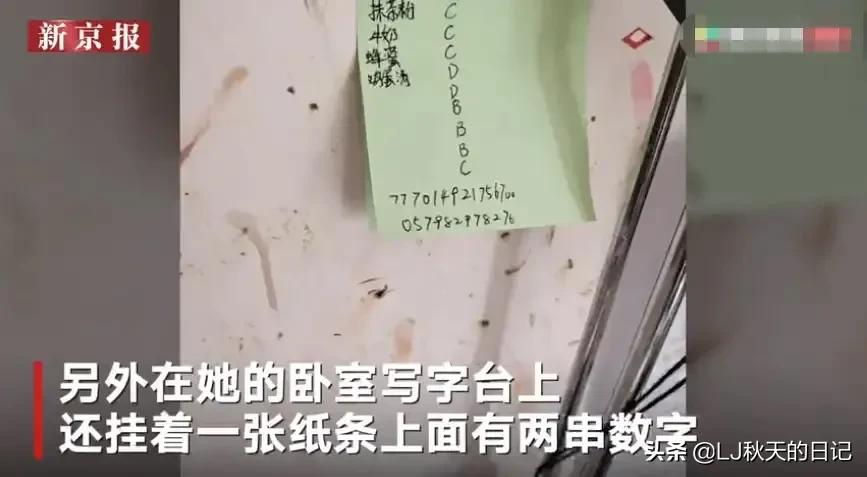 新京报
抹茶粉 C
牛奶 C
蜂蜜 C
D
D
B
B
B
C
777014921756700
057982978276
另外在她的卧室写字台上
还挂着一张纸条上面有两串数字
头条 @LJ秋天的日记